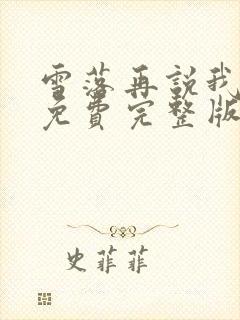 雪落再說我
免費完整版
史菲菲